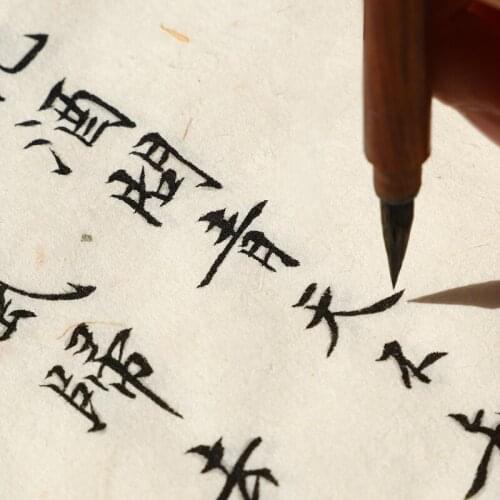 酒問青天不
風歸去